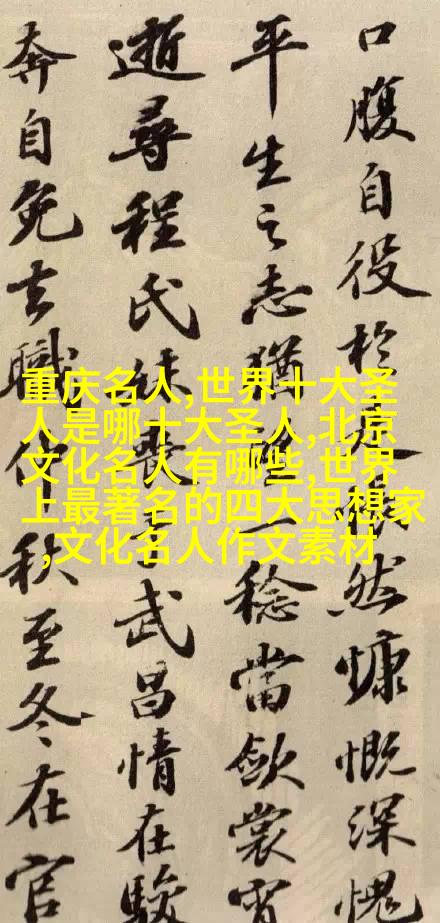 口腹自役於悵然慷慨深愧
平生之志猶一稔當斂裳宵
逝尋程氏妹喪武昌情在駿
奔自免去職仲秋至冬在官
重庆名人,世界十大圣
人是哪十大圣人,北京
文化名人有哪些,世界
上最著名的四大思想家
,文化名人作文素材